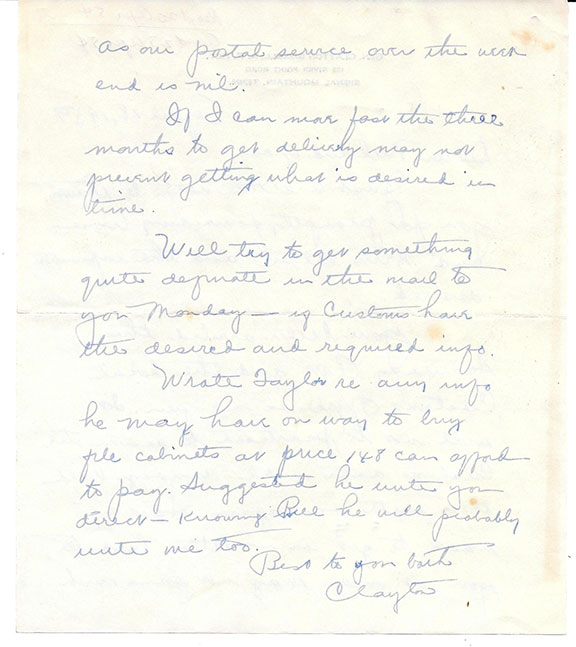 as our postal service over the week
end is nil.
If I can move fast the three
months to get delivery may not
prevent getting what is desired in
time.
Will try to get something
quite definate in the mail to
you Monday — if Customs have
the desired and required info.
Wrote Taylor re any info
he may have on way to buy
file cabinets at price can afford
to pay. Suggested he write you
direct — Knowing Bill he will probably
write me too.
Best to you both
Clayton